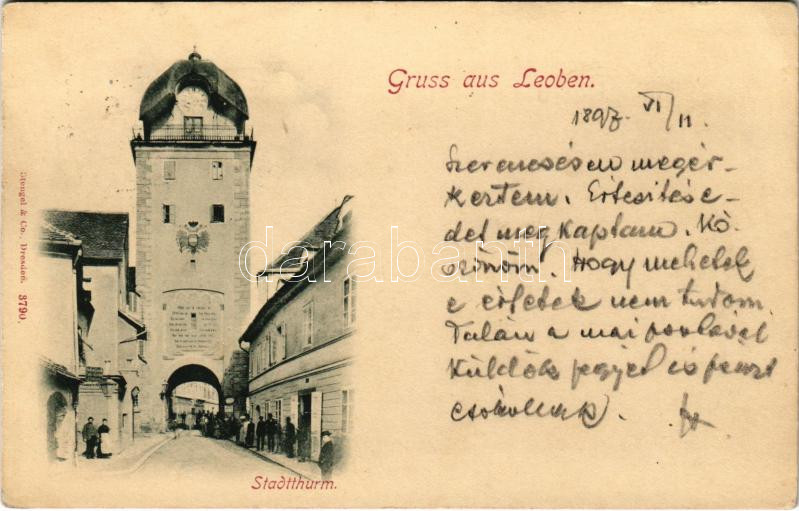 Gruss aus Leoben.
1897. VI/11.
Szerencsésen megér-
keztem. Értesitése-
det meg kaptam. Kö-
szönöm. Hogy mehetek
e értetek nem tudom.
Talán a mai postával
küldök jegyet is pénzt
csókollak.
Stengel & Co., Dresden. 3790.
Stadtthurm.
darabanth